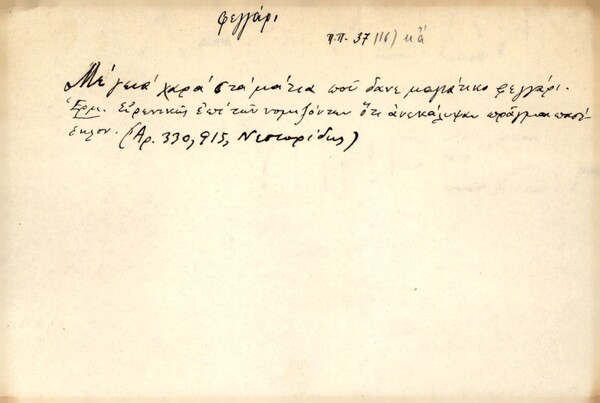 φεγγάρι
π.π. 37 (16) κἄ
Μέ γειά χαρά στά μάτια ποῦ δανε μαγιάτικο φεγγάρι.
Ἑρμ. εἰρωνικῶς ἐπί τῶν νομιζόντων ὅτι ἀνεκάλυψαν πρᾶγμα πασί-
δηλον. (Ἀρ. 330, 915, Νεστορίδης)